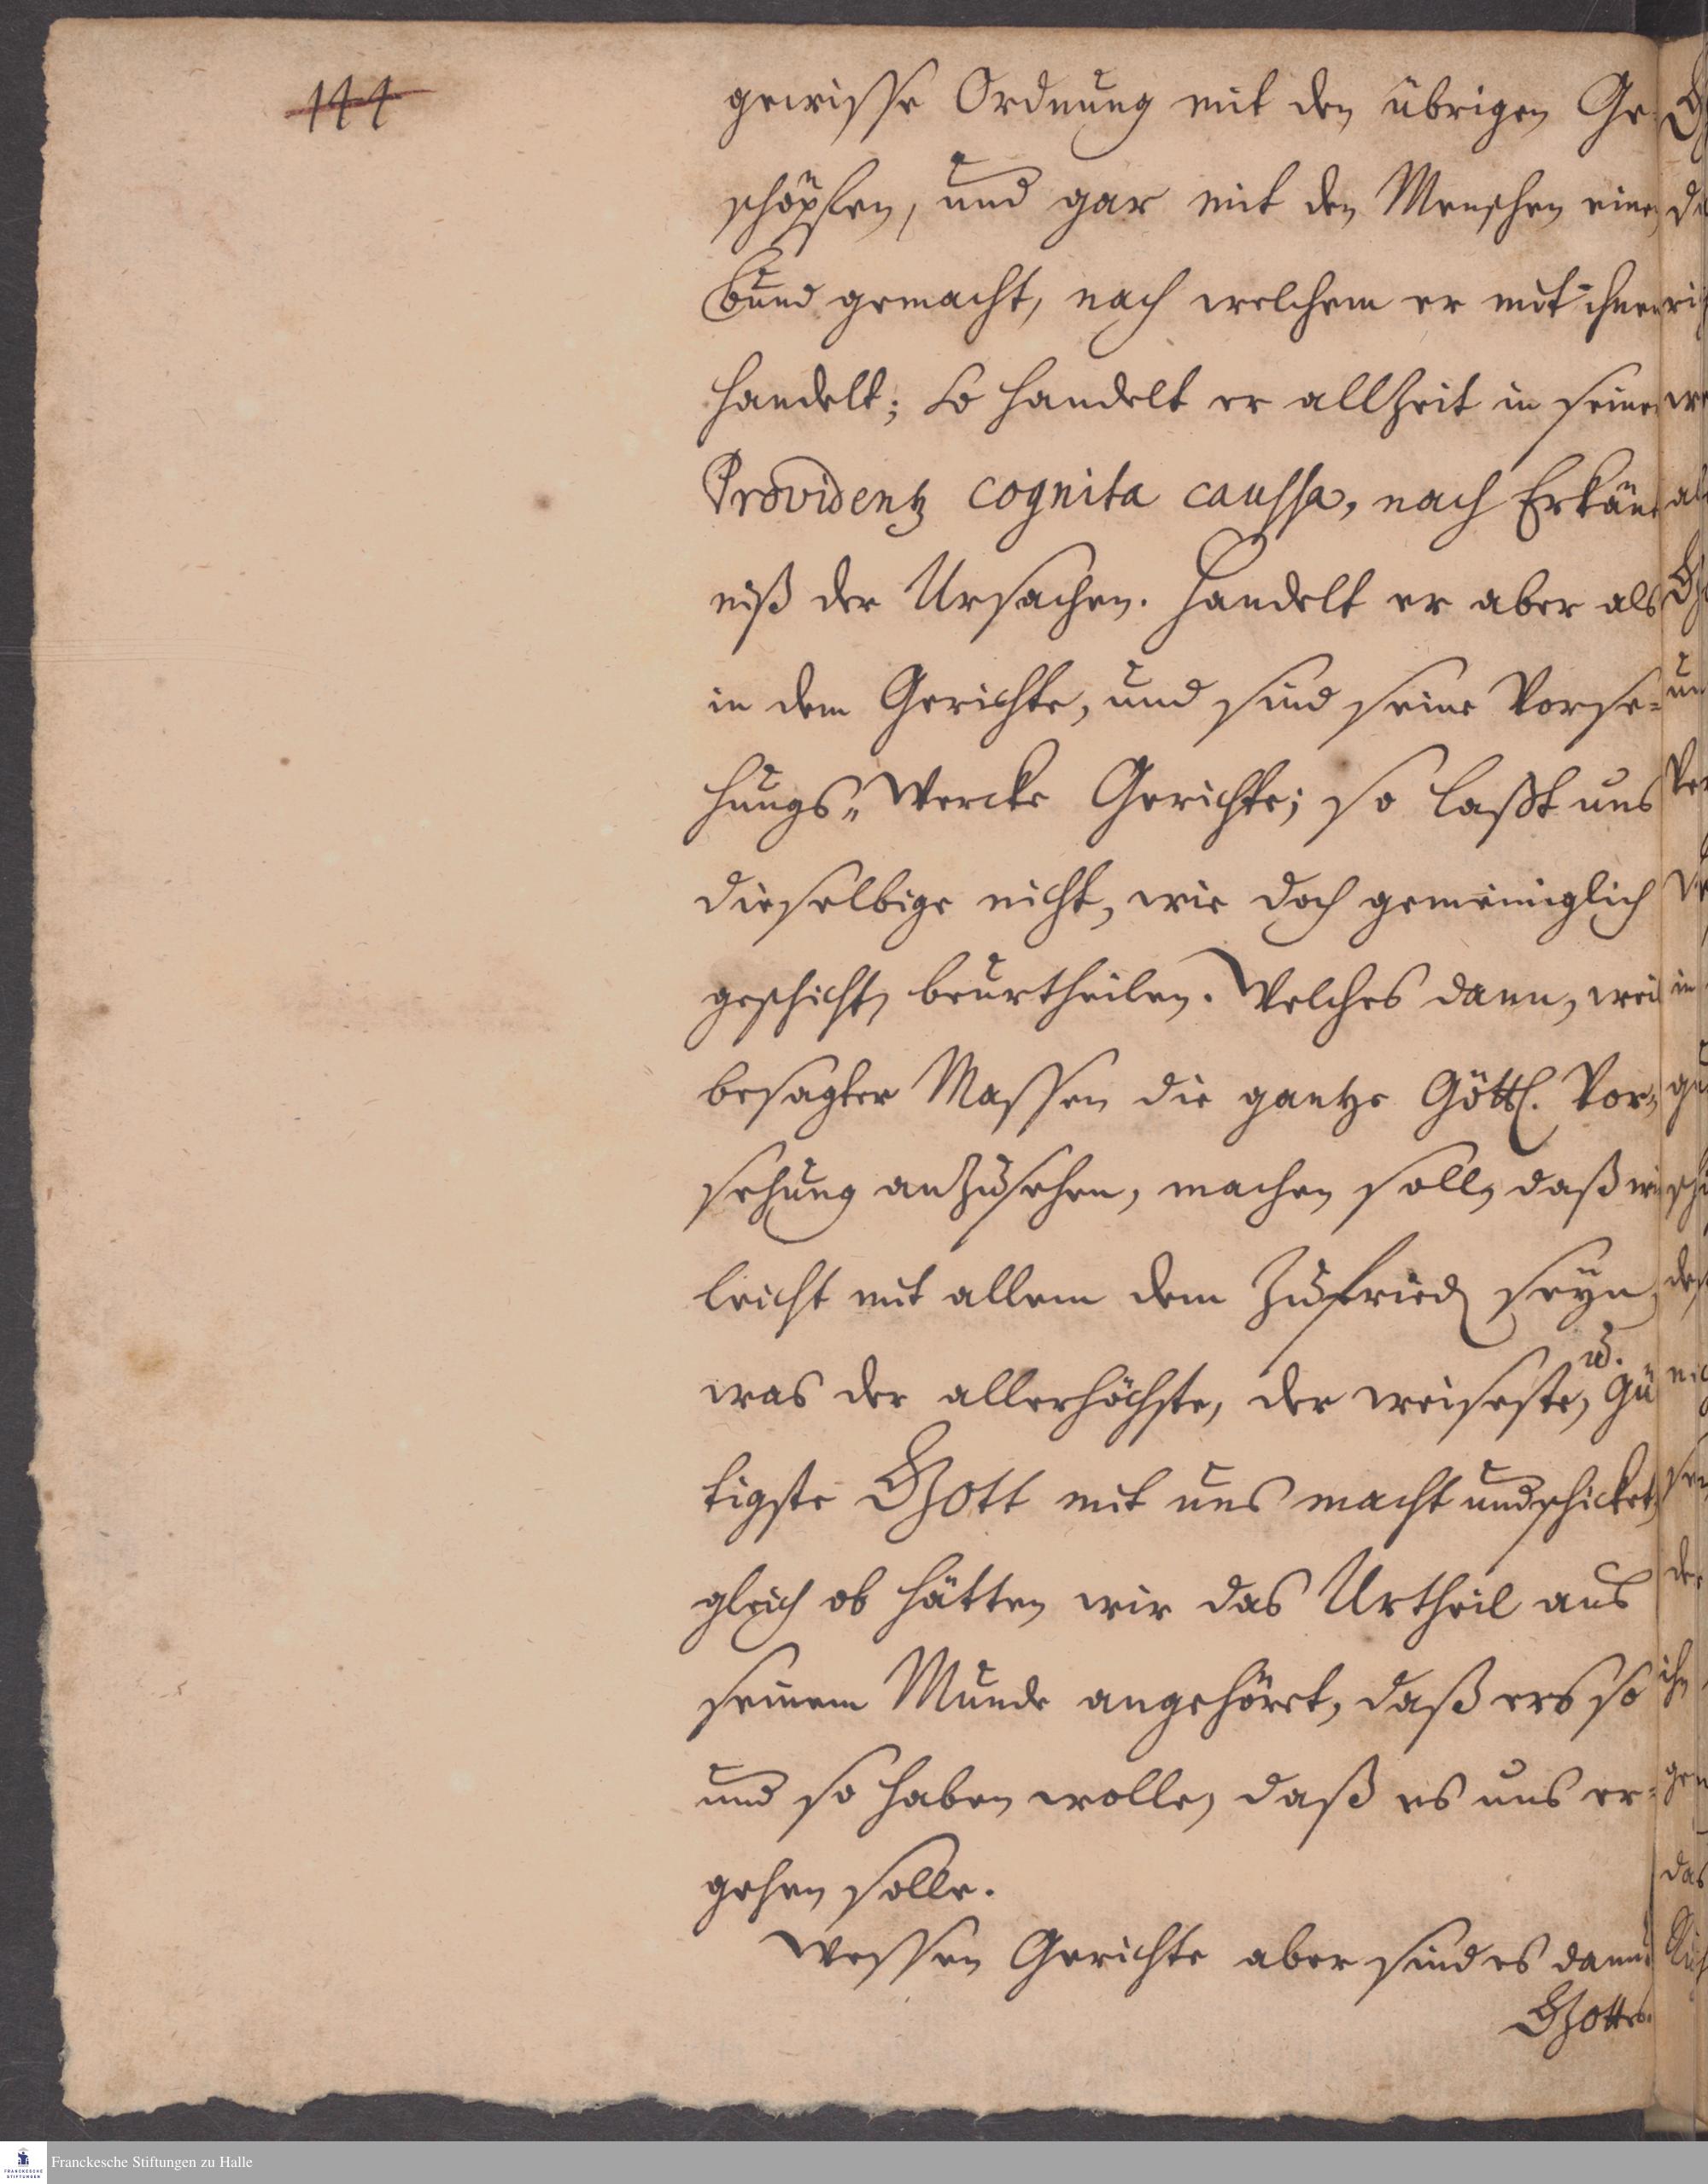 144
gewisse Ordnung mit den übrigen Ge-
schöpfen, und gar mit den Menschen einen
Bund gemacht, nach welchem er mit ihnen
handelt; So handelt er allzeit in seiner
Providentz cognita caussa, nach Erkänt
niß der Ursachen. Handelt er aber als
in dem Gerichte, und sind seine Vorse-
hungs-Wercke Gerichte; so laßt uns
dieselbige nicht, wie doch gemeiniglich
geschicht, beurtheilen. Welches dann, weil
besagter Massen die gantze Göttl. Vor-
sehung anzusehen, machen soll, daß wir
leicht mit allem dem zufried seyn,
was der allerhöchste, der weiseste, u. Gü
tigste GOtt mit uns macht und schicket,
gleich ob hätten wir das Urtheil aus
seinem Munde angehöret, daß ers so
und so haben wolle, daß es uns er-
gehen solle.
Wessen Gerichte aber sind es dann?
GOttes.
Franckesche Stiftungen zu Halle